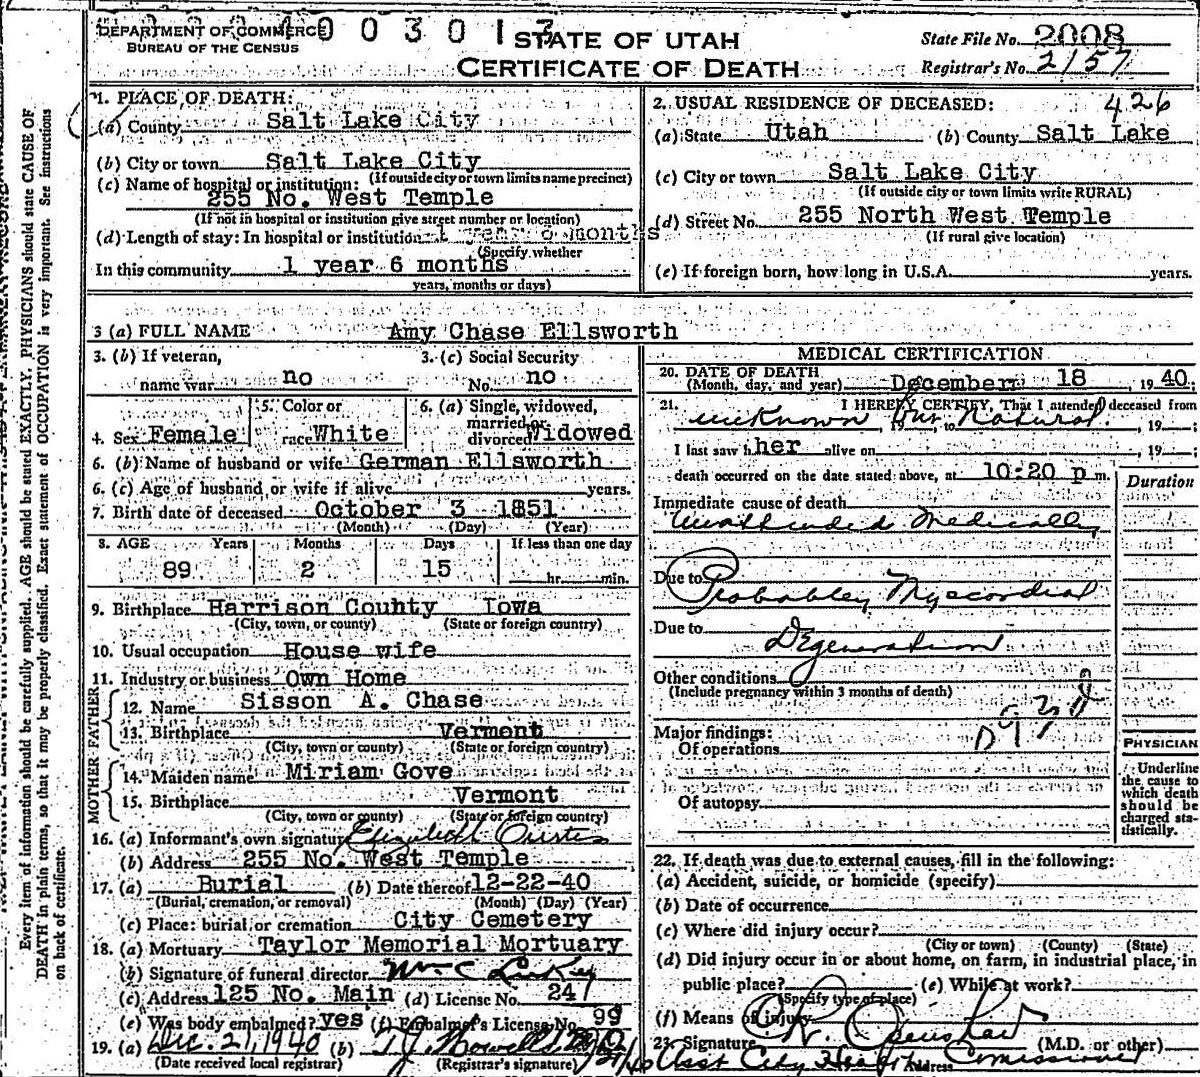 DEPARTMENT OF COMMERCE
BUREAU OF THE CENSUS
0 0 3 0 1 3
STATE OF UTAH
CERTIFICATE OF DEATH
State File No. 2008
Registrar's No. 2157
1. PLACE OF DEATH:
(a) County Salt Lake City
(b) City or town Salt Lake City
(If outside city or town limits name precinct)
(c) Name of hospital or institution:
255 No. West Temple
(If not in hospital or institution give street number or location)
(d) Length of stay: In hospital or institution 1 year 6 months
(Specify whether
In this community 1 year 6 months
years, months or days)
2. USUAL RESIDENCE OF DECEASED: 426
(a) State Utah (b) County Salt Lake
(c) City or town Salt Lake City
(If outside city or town limits write RURAL)
(d) Street No. 255 North West Temple
(If rural give location)
(e) If foreign born, how long in U.S.A. years.
3 (a) FULL NAME Amy Chase Ellsworth
3. (b) If veteran, name war no
3. (c) Social Security No. no
4. Sex Female
5. Color or race White
6. (a) Single, widowed, married or divorced Widowed
6. (b) Name of husband or wife German Ellsworth
6. (c) Age of husband or wife if alive years.
7. Birth date of deceased October 3 1851
(Month) (Day) (Year)
8. AGE Years Months Days If less than one day
89 2 15 hr. min.
9. Birthplace Harrison County Iowa
(City, town, or county) (State or foreign country)
10. Usual occupation House wife
11. Industry or business Own Home
FATHER
12. Name Sisson A. Chase
13. Birthplace Vermont
(City, town or county) (State or foreign country)
MOTHER
14. Maiden name Miriam Gove
15. Birthplace Vermont
(City, town or county) (State or foreign country)
16. (a) Informant's own signature Elizabeth
(b) Address 255 No. West Temple
17. (a) Burial (b) Date thereof 12-22-40
(Burial, cremation, or removal) (Month) (Day) (Year)
(c) Place: burial or cremation City Cemetery
18. (a) Mortuary Taylor Memorial Mortuary
(b) Signature of funeral director Wm C
(c) Address 125 No. Main (d) License No. 247
(e) Was body embalmed? yes (f) Embalmer's License No. 99
19. (a) Dec. 21, 1940 (b) T.J. Howells MD
(Date received local registrar) (Registrar's signature)
MEDICAL CERTIFICATION
20. DATE OF DEATH
(Month, day, and year) December 18, 1940;
21. I HEREBY CERTIFY, That I attended deceased from
unknown, 19 , to Natural., 19 ;
I last saw her alive on , 19 ;
death occurred on the date stated above, at 10:20 p m.
Duration
Immediate cause of death
Unattended Medically
Due to Probabley Myocordial
Due to Degeneration
Other conditions
(Include pregnancy within 3 months of death)
Major findings:
Of operations
Of autopsy
PHYSICIAN
Underline the cause to which death should be charged statistically.
22. If death was due to external causes, fill in the following:
(a) Accident, suicide, or homicide (specify)
(b) Date of occurrence
(c) Where did injury occur?
(City or town) (County) (State)
(d) Did injury occur in or about home, on farm, in industrial place, in
public place? (e) While at work?
(Specify type of place)
(f) Means of injury
23. Signature (M.D. or other)
Asst City Health Comissioner
Address
Every item of information should be carefully supplied. AGE should be stated EXACTLY. PHYSICIANS should state CAUSE OF
DEATH in plain terms, so that it may be properly classified. Exact statement of OCCUPATION is very important. See instructions
on back of certificate.